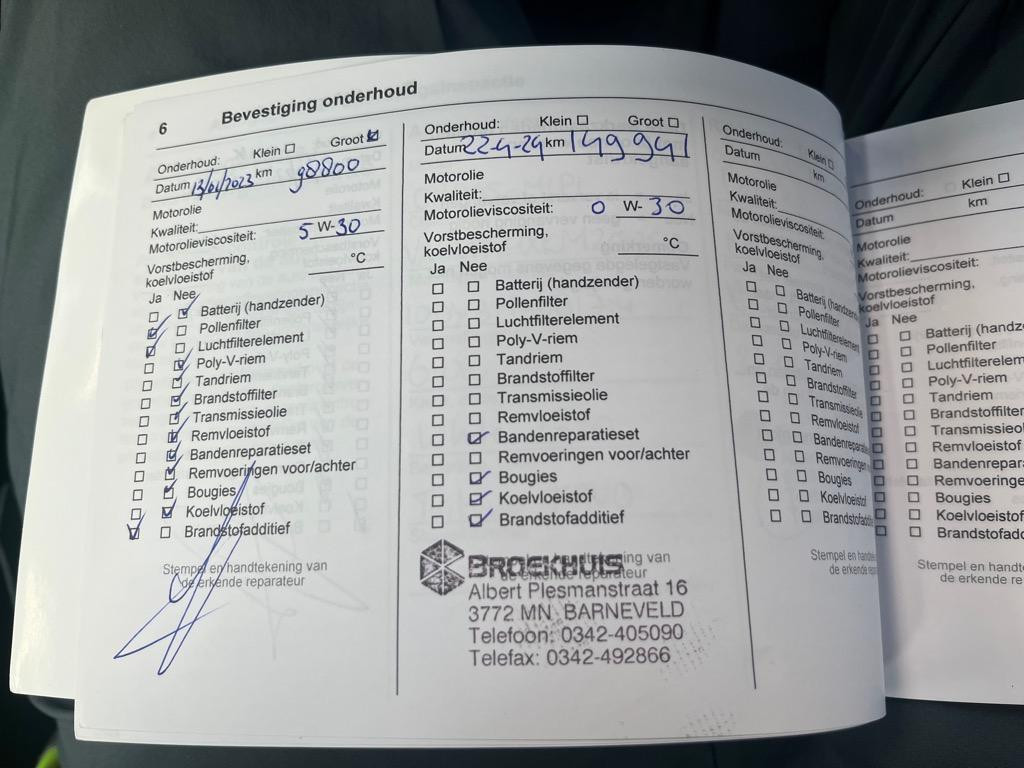 6 Bevestiging onderhoud
Onderhoud: Klein ☐ Groot ☑
Datum 13/01/2023 km 98800
Motorolie
Kwaliteit:
Motorolieviscositeit: 5 W-30
Vorstbescherming,
koelvloeistof °C
Ja Nee
☐ ☑ Batterij (handzender)
☑ ☐ Pollenfilter
☑ ☐ Luchtfilterelement
☐ ☑ Poly-V-riem
☐ ☑ Tandriem
☐ ☑ Brandstoffilter
☐ ☑ Transmissieolie
☐ ☑ Remvloeistof
☐ ☑ Bandenreparatieset
☐ ☑ Remvoeringen voor/achter
☐ ☑ Bougies
☐ ☑ Koelvloeistof
☑ ☐ Brandstofadditief
Stempel en handtekening van
de erkende reparateur
Onderhoud: Klein ☐ Groot ☐
Datum 22-4-24 km 149941
Motorolie
Kwaliteit:
Motorolieviscositeit: 0 W-30
Vorstbescherming,
koelvloeistof °C
Ja Nee
☐ ☐ Batterij (handzender)
☐ ☐ Pollenfilter
☐ ☐ Luchtfilterelement
☐ ☐ Poly-V-riem
☐ ☐ Tandriem
☐ ☐ Brandstoffilter
☐ ☐ Transmissieolie
☐ ☐ Remvloeistof
☐ ☑ Bandenreparatieset
☐ ☐ Remvoeringen voor/achter
☐ ☑ Bougies
☐ ☑ Koelvloeistof
☐ ☑ Brandstofadditief
Stempel en handtekening van
de erkende reparateur
BROEKHUIS
Albert Plesmanstraat 16
3772 MN BARNEVELD
Telefoon: 0342-405090
Telefax: 0342-492866
Onderhoud: Klein ☐
Datum km
Motorolie
Kwaliteit:
Motorolieviscositeit:
Vorstbescherming,
koelvloeistof
Ja Nee
☐ ☐ Batterij (handzender
☐ ☐ Pollenfilter
☐ ☐ Luchtfilterelement
☐ ☐ Poly-V-riem
☐ ☐ Tandriem
☐ ☐ Brandstoffilter
☐ ☐ Transmissieolie
☐ ☐ Remvloeistof
☐ ☐ Bandenreparatie
☐ ☐ Remvoeringen
☐ ☐ Bougies
☐ ☐ Koelvloeistof
☐ ☐ Brandstofaddit
Stempel en handte
de erkende repa
Onderhoud: ☐ Klein ☐
Datum km
Motorolie
Kwaliteit:
Motorolieviscositeit:
Vorstbescherming,
koelvloeistof
Ja Nee
☐ ☐ Batterij (handze
☐ ☐ Pollenfilter
☐ ☐ Luchtfilterelem
☐ ☐ Poly-V-riem
☐ ☐ Tandriem
☐ ☐ Brandstoffilter
☐ ☐ Transmissieo
☐ ☐ Remvloeistof
☐ ☐ Bandenrepara
☐ ☐ Remvoeringe
☐ ☐ Bougies
☐ ☐ Koelvloeistof
☐ ☐ Brandstofadd
Stempel en handte
de erkende re